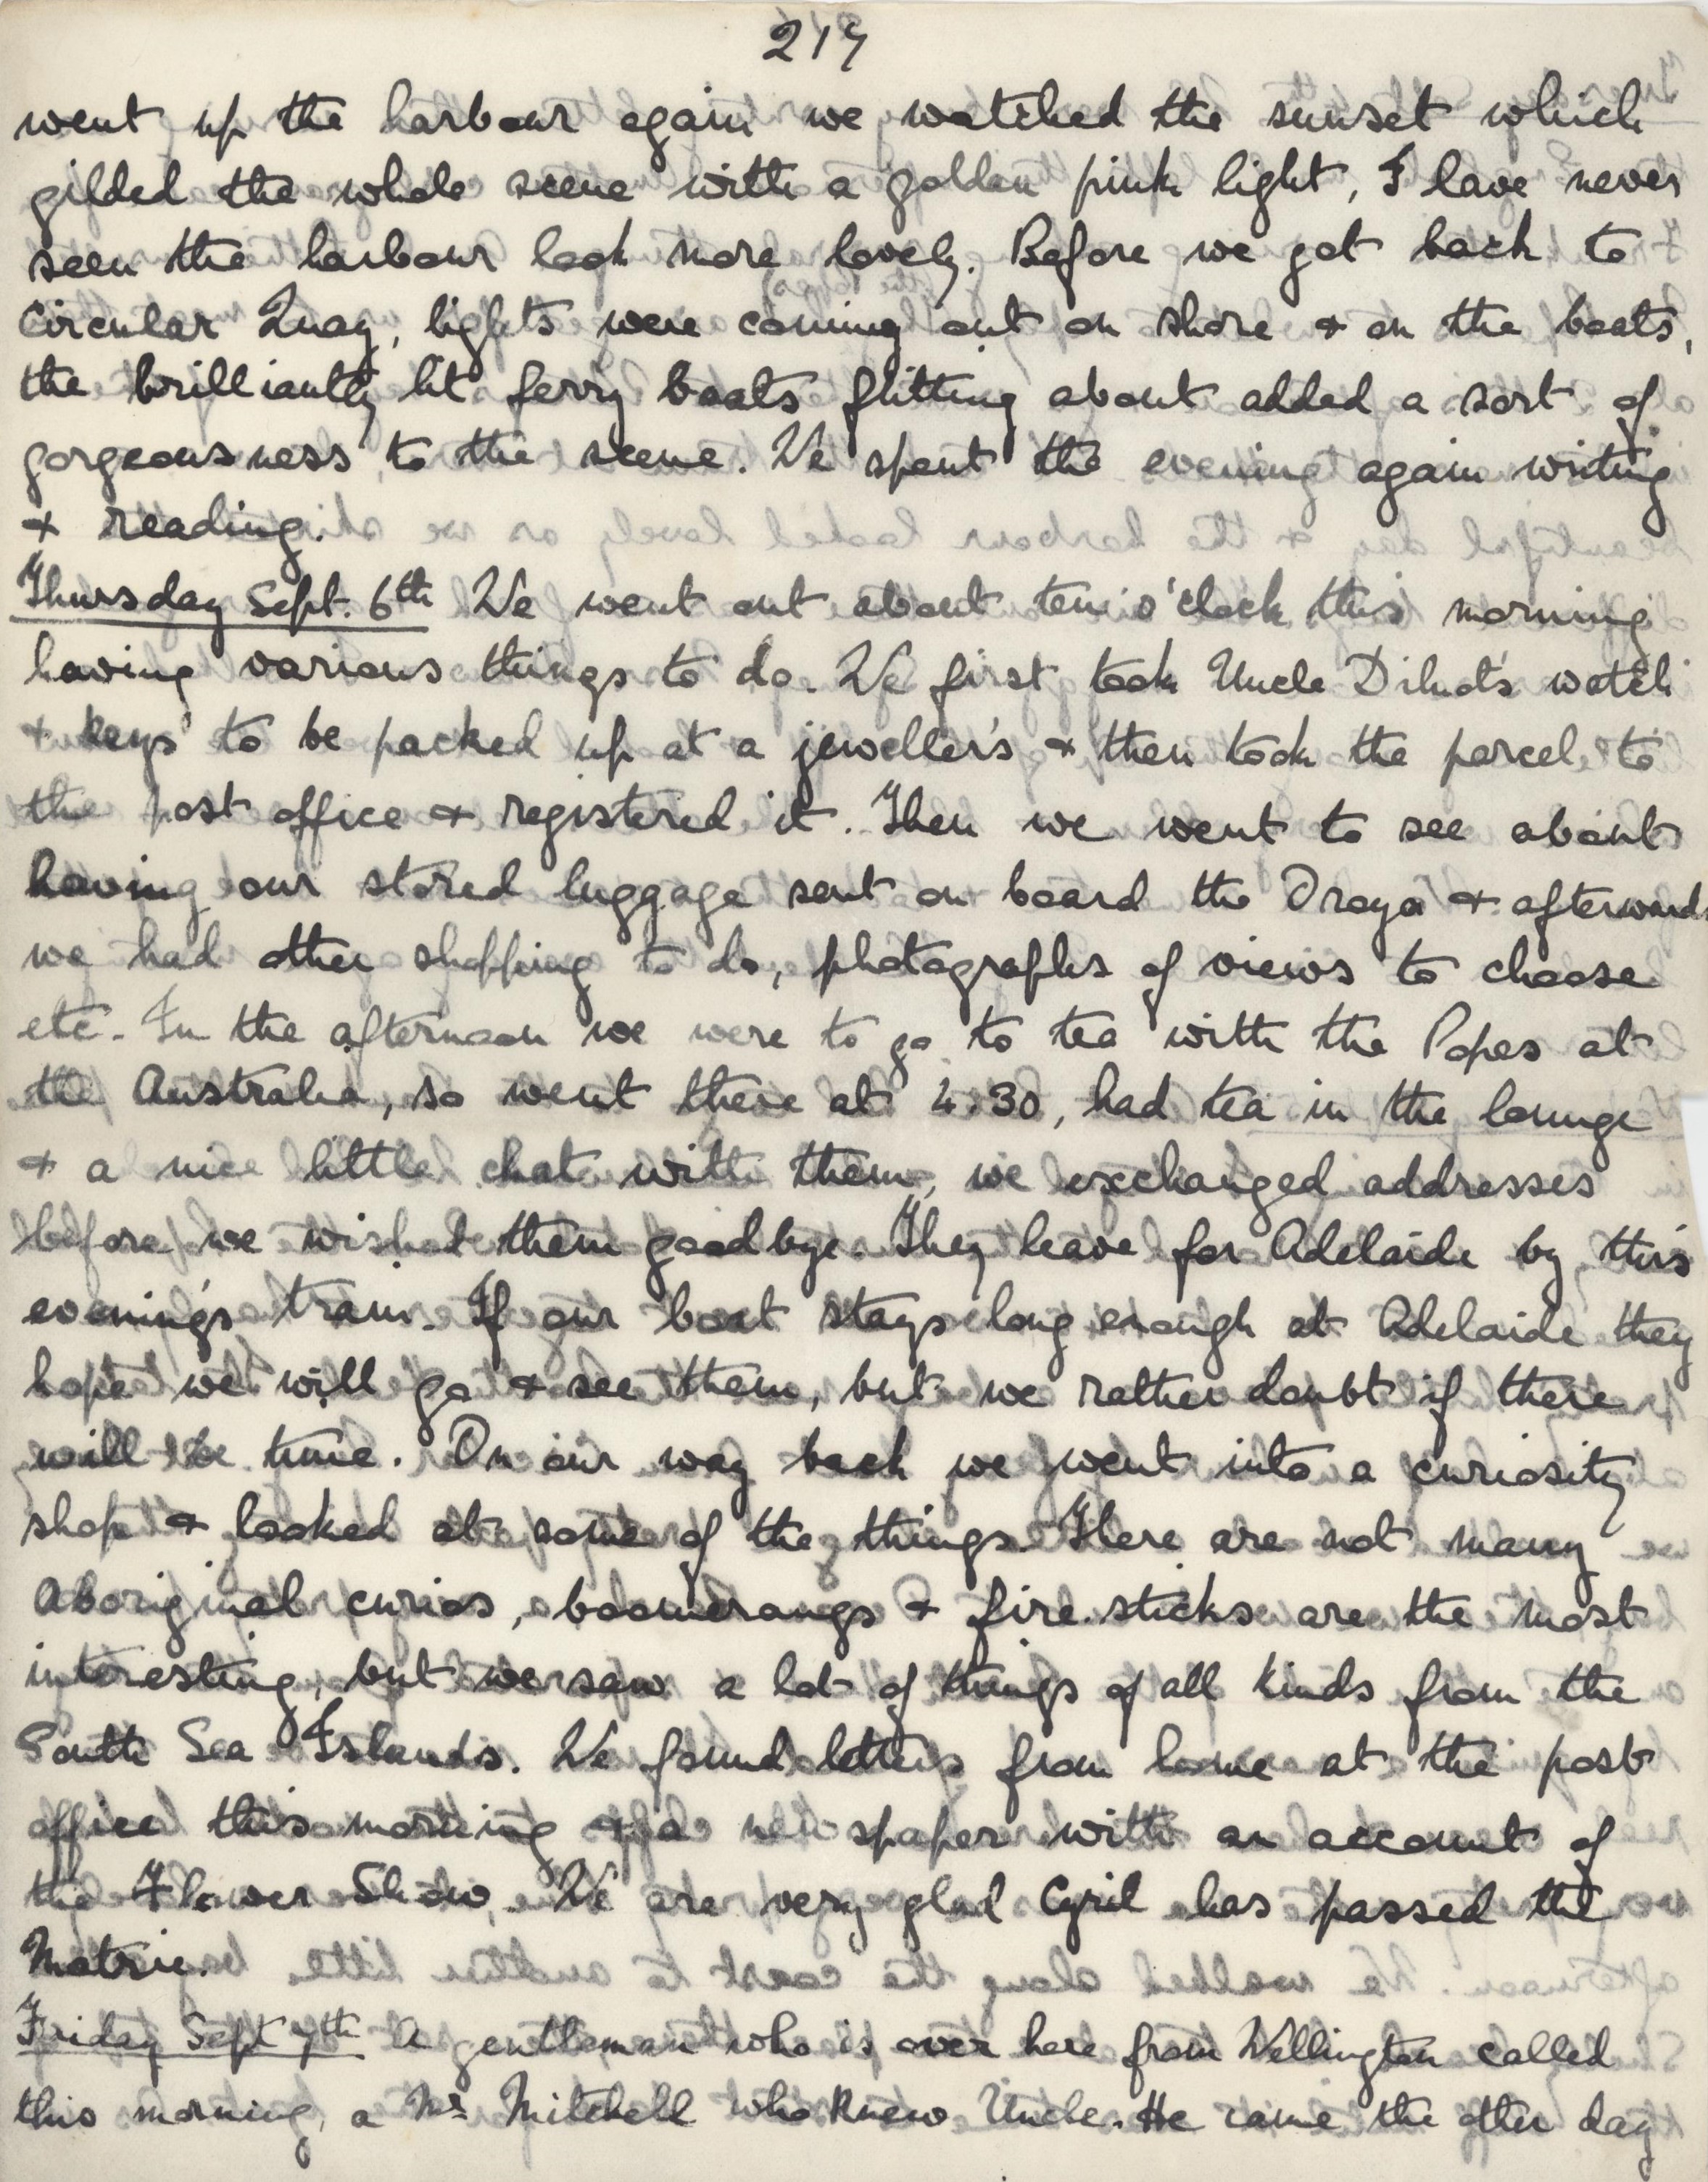 217
went up the harbour again we watched the sunset which
gilded the whole scene with a golden pink light, I have never
seen the harbour look more lovely. Before we got back to
Circular Quay, lights were coming out on shore & on the boats,
the brilliantly lit ferry boats flitting about added a sort of
gorgeousness to the scene. We spent the evening again writing
& reading.
Thursday Sept. 6th We went out about ten o'clock this morning
having various things to do. We first took Uncle watch
& keys to be packed up at a jeweller's & then took the parcel to
the post office & registered it. Then we went to see about
having our stored luggage sent on board the Oroya & afterwards
we had other shopping to do, photographs of views to choose
etc. In the afternoon we were to go to tea with the Popes at
the Australia, so went there at 4.30, had tea in the lounge
& a nice little chat with them, we exchanged addresses
before we wished them goodbye. They leave for Adelaide by this
evening's train. If our boat stays long enough at Adelaide they
hope we will go & see them, but we rather doubt if there
will be time. On our way back we went into a curiosity
shop & looked at some of the things. There are not many
Aboriginal curios, boomerangs & fire sticks are the most
interesting, but we saw a lot of things of all kinds from the
South Sea Islands. We found letters from home at the post
office this morning & a newspaper with an account of
the Flower Show. We are very glad Cyril has passed the
Matric.
Friday Sept 7th A gentleman who is over here from Wellington called
this morning, a Mr Mitchell who knew Uncle. He came the other day